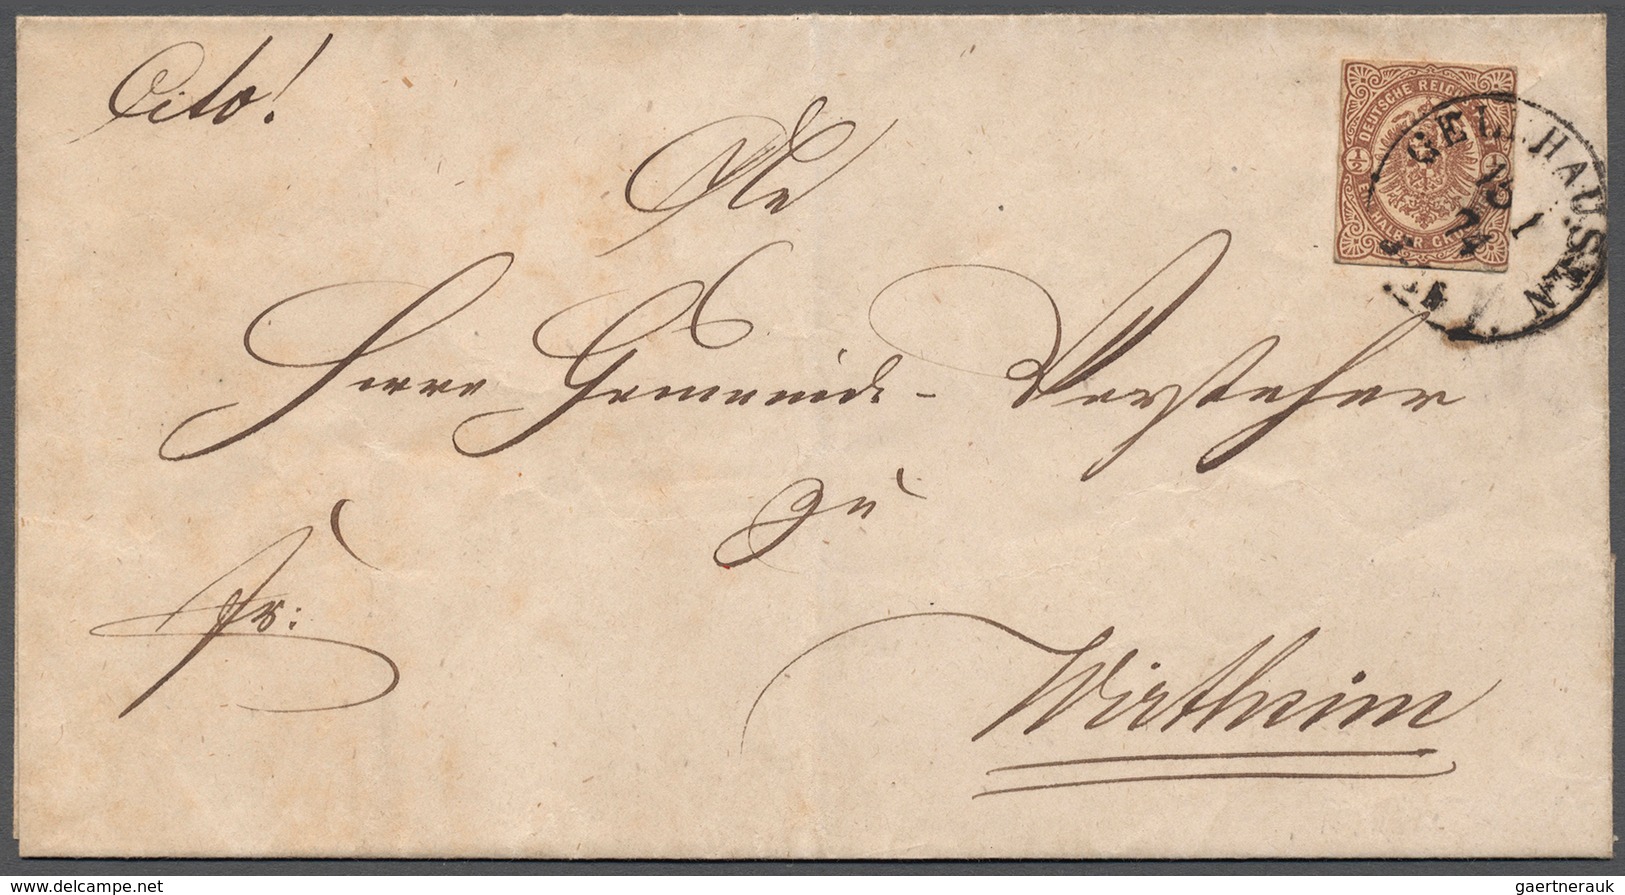 Cito!
DEUTSCHE REICHS
½ ½
EIN HALBER GROSCHEN
GELNHAUSEN
1
74
An
Herrn Gemeinde-Vorsteher
zu
Fr:
Wirtheim
www.delcampe.net
gaertnerauk